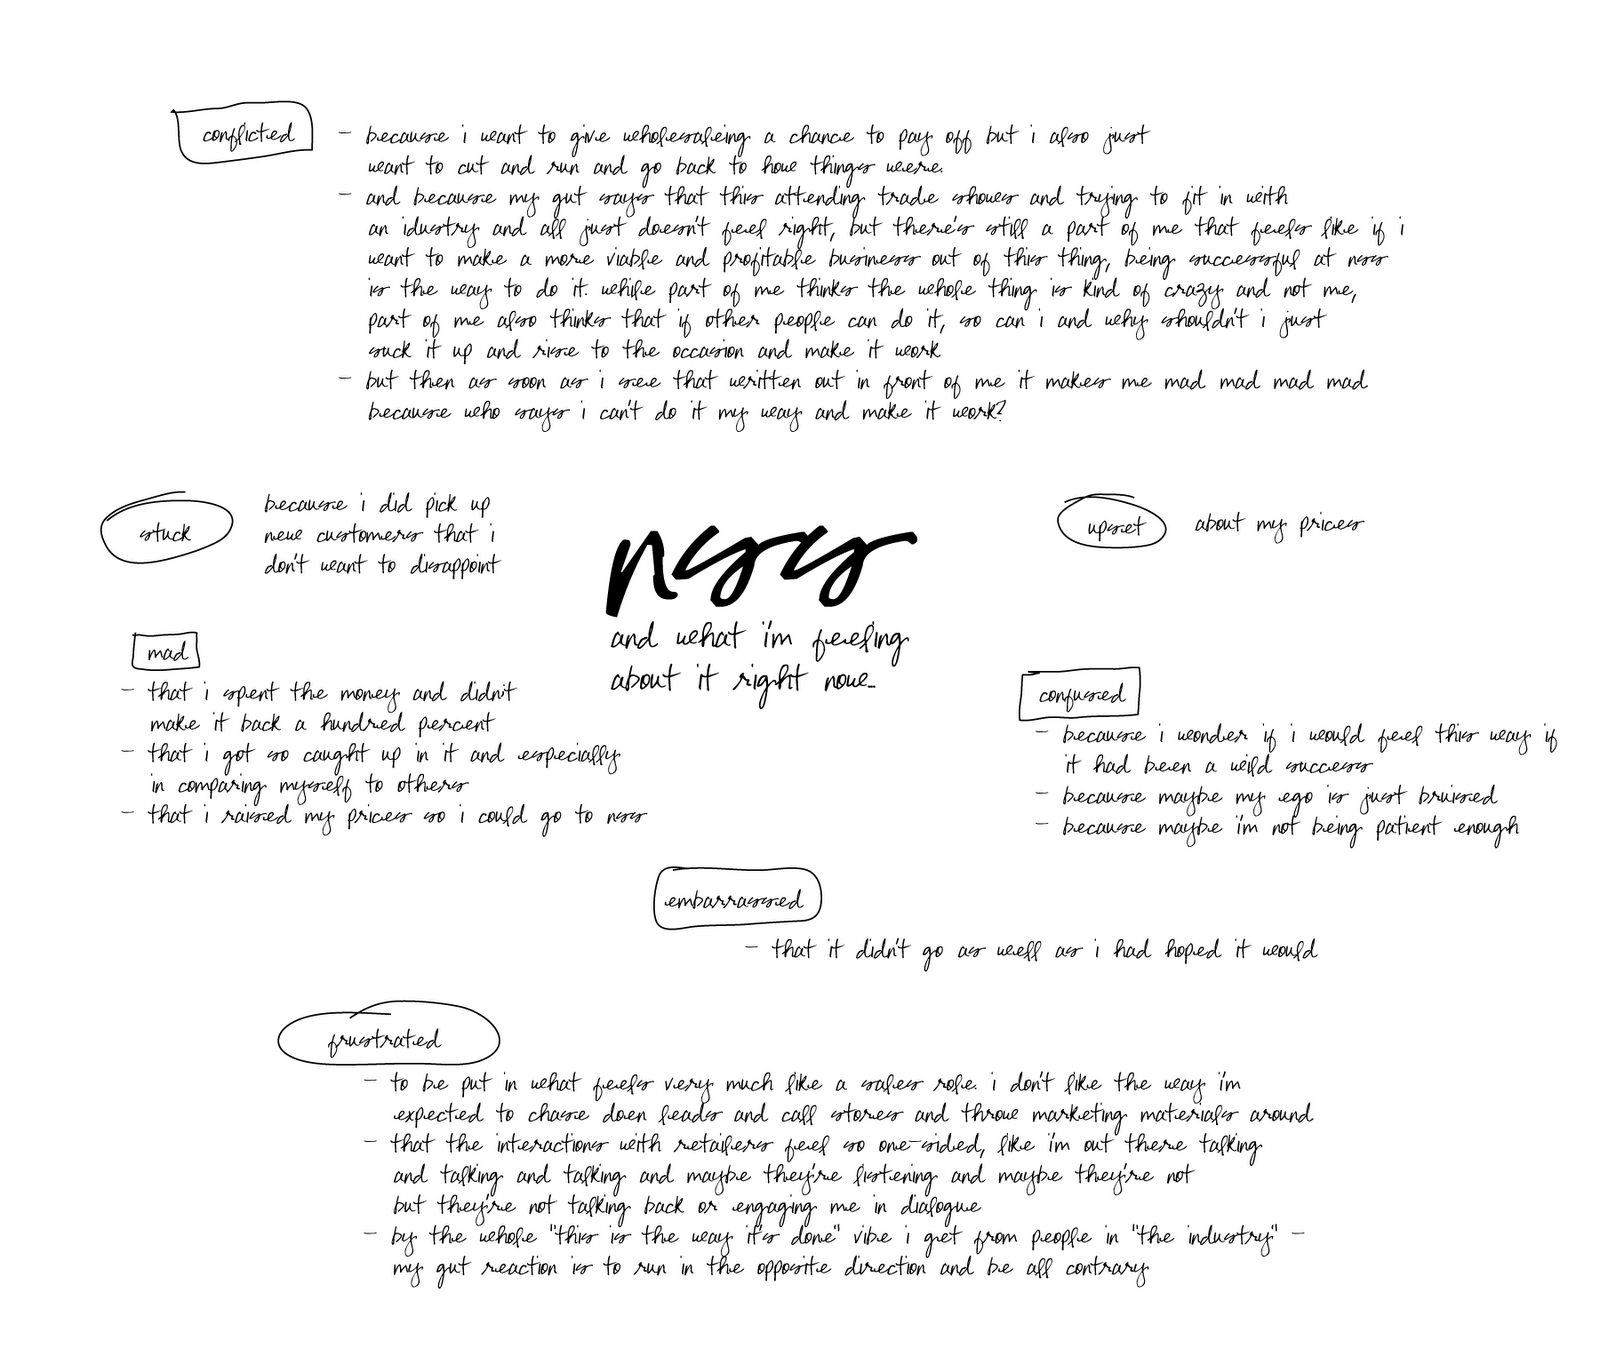 conflicted
- because i want to give wholesaleing a chance to pay off but i also just
want to cut and run and go back to how things were.
- and because my gut says that this attending trade shows and trying to fit in with
an idustry and all just doesn't feel right, but there's still a part of me that feels like if i
want to make a more viable and profitable business out of this thing, being successful at nss
is the way to do it. while part of me thinks the whole thing is kind of crazy and not me,
part of me also thinks that if other people can do it, so can i and why shouldn't i just
suck it up and rise to the occasion and make it work
- but then as soon as i see that written out in front of me it makes me mad mad mad mad
because who says i can't do it my way and make it work?
stuck
because i did pick up
new customers that i
don't want to disappoint
nss
and what i'm feeling
about it right now...
upset
about my prices
mad
- that i spent the money and didn't
make it back a hundred percent
- that i got so caught up in it and especially
in comparing myself to others
- that i raised my prices so i could go to nss
confused
- because i wonder if i would feel this way if
it had been a wild success
- because maybe my ego is just bruised
- because maybe i'm not being patient enough
embarrassed
- that it didn't go as well as i had hoped it would
frustrated
- to be put in what feels very much like a sales role. i don't like the way i'm
expected to chase down leads and call stores and throw marketing materials around
- that the interactions with retailers feel so one-sided, like i'm out there talking
and talking and talking and maybe they're listening and maybe they're not
but they're not talking back or engaging me in dialogue
- by the whole "this is the way it's done" vibe i get from people in "the industry" -
my gut reaction is to run in the opposite direction and be all contrary